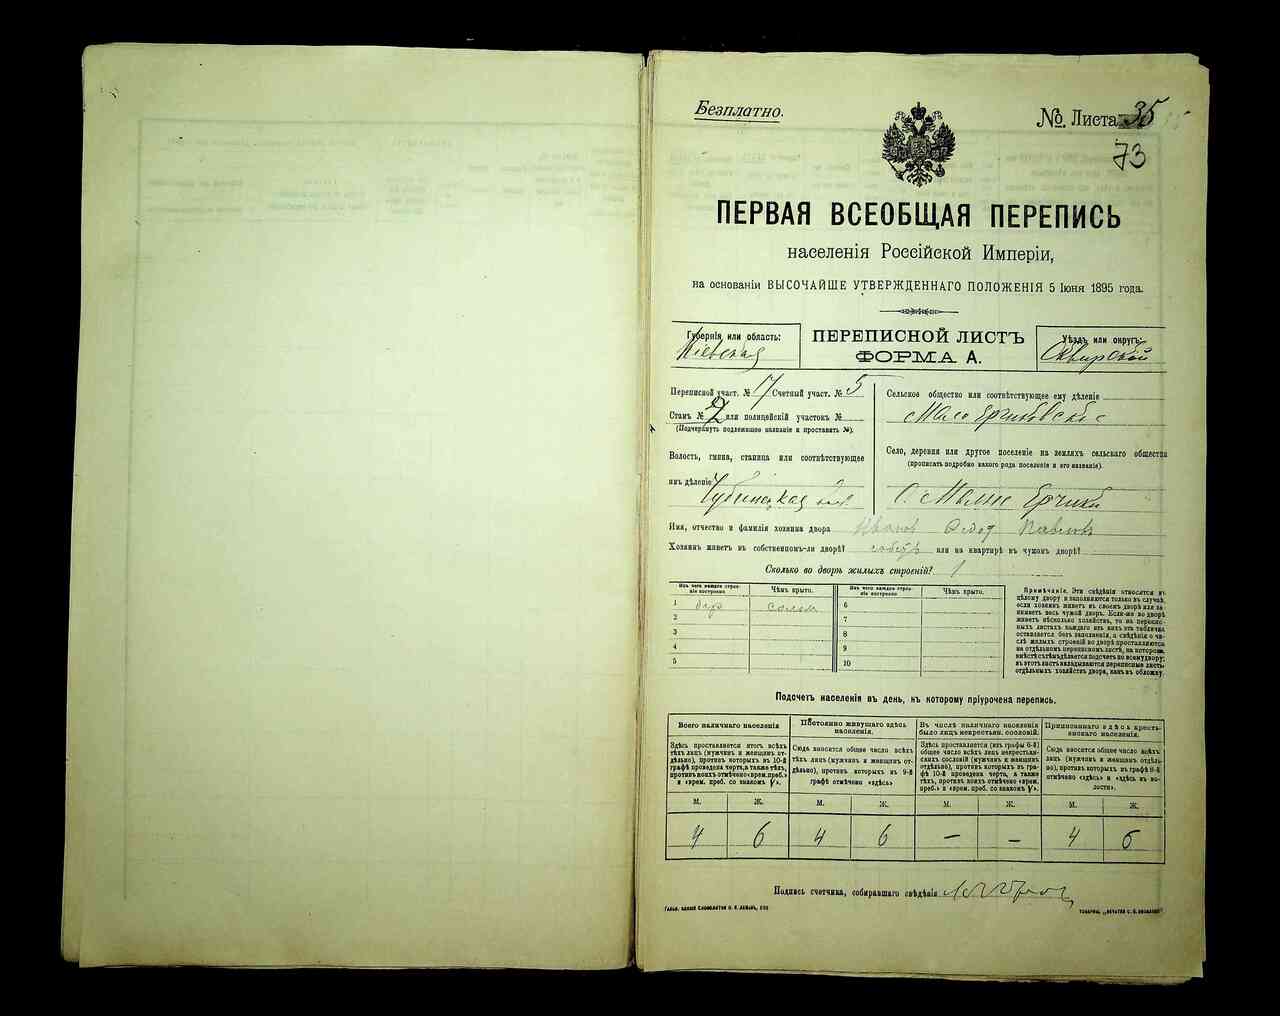 Безплатно.
№ Листа 35
73
ПЕРВАЯ ВСЕОБЩАЯ ПЕРЕПИСЬ
населенія Россійской Имперіи,
на основаніи ВЫСОЧАЙШЕ УТВЕРЖДЕННАГО ПОЛОЖЕНІЯ 5 Іюня 1895 года.
Губернія или область:
Кіевская
ПЕРЕПИСНОЙ ЛИСТЪ
ФОРМА А.
Уѣздъ или округъ:
Сквирскій
Переписной участ. № 17 Счетный участ. № 5
Станъ № 2 или полицейскій участокъ №
(Подчеркнуть подлежащее названіе и проставить №).
Волость, гмина, станица или соотвѣтствующее
имъ дѣленіе
Сельское общество или соотвѣтствующее ему дѣленіе
Мало Ерчиковское
Село, деревня или другое поселеніе на земляхъ сельскаго общества
(прописать подробно какого рода поселеніе и его названіе).
с. Малые Ерчики
Имя, отчество и фамилія хозяина двора Иванов Федот Павлов
Хозяинъ живетъ въ собственномъ-ли дворѣ? или на квартирѣ въ чужомъ дворѣ?
Сколько во дворѣ жилыхъ строеній? 1
Изъ чего каждое строеніе построено
Чѣмъ крыто.
Изъ чего каждое строеніе построено
Чѣмъ крыто.
1 солом
6
2
7
3
8
4
9
5
10
Примѣчаніе. Эти свѣдѣнія относятся къ
цѣлому двору и заполняются только въ случаѣ,
если хозяинъ живетъ въ своемъ дворѣ или занимаетъ
весь чужой дворъ. Если-же во дворѣ
живетъ нѣсколько хозяйствъ, то на переписныхъ
листахъ каждаго изъ нихъ эта табличка
оставляется безъ заполненія, а свѣдѣнія о числѣ
жилыхъ строеній во дворѣ проставляются
на отдѣльномъ переписномъ листѣ, на которомъ
вмѣстѣ съ тѣмъ дѣлается подсчетъ по всему двору;
въ этотъ листъ вкладываются переписные листы
отдѣльныхъ хозяйствъ двора, какъ въ обложку.
Подсчетъ населенія въ день, къ которому пріурочена перепись.
Всего наличнаго населенія
Здѣсь проставляется итогъ всѣхъ
тѣхъ лицъ (мужчинъ и женщинъ отдѣльно),
противъ которыхъ въ 10-й
графѣ проведена черта, а также тѣхъ,
противъ коихъ отмѣчено «врем. преб.»
и «врем. преб. со знакомъ V».
Постоянно живущаго здѣсь
населенія.
Сюда вносится общее число всѣхъ
лицъ (мужчинъ и женщинъ отдѣльно),
противъ которыхъ въ 9-й
графѣ отмѣчено «здѣсь»
Въ числѣ наличнаго населенія
было лицъ некрестьян. сословій.
Здѣсь проставляется (изъ графы 6-й)
общее число всѣхъ лицъ некрестьянскихъ
сословій (мужчинъ и женщинъ
отдѣльно), противъ которыхъ въ графѣ
10-й проведена черта, а также
тѣхъ, противъ коихъ отмѣчено «врем.
преб.» и «врем. преб. со знакомъ V».
Приписаннаго здѣсь крестьянскаго
населенія.
Сюда вносится общее число всѣхъ
лицъ (мужчинъ и женщинъ отдѣльно),
противъ которыхъ въ графѣ 8-й
отмѣчено «здѣсь» и «здѣсь въ волости».
М. Ж. М. Ж. М. Ж. М. Ж.
4 6 4 6 — — 4 6
Подпись счетчика, собиравшаго свѣдѣнія